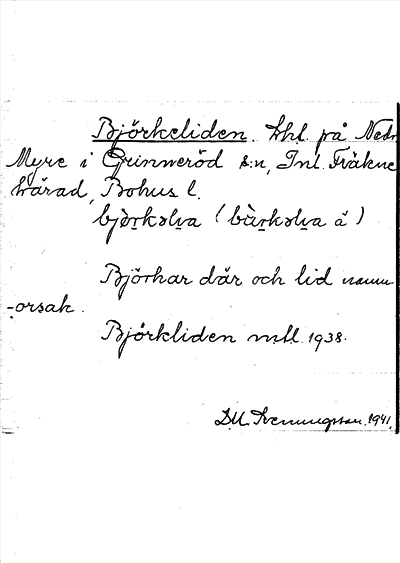 Björkeliden. lht. på Nedr.
Myre i Grinneröd s:n, Inl. Fräkne
härad, Bohus l.
bjö̀rkəlıa (bàrkəlıa å)
Björkar där och lid namn
-orsak.
Björkliden mtl. 1938.
D.U. Svenningsson. 1941.